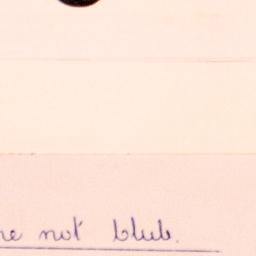 not blub.